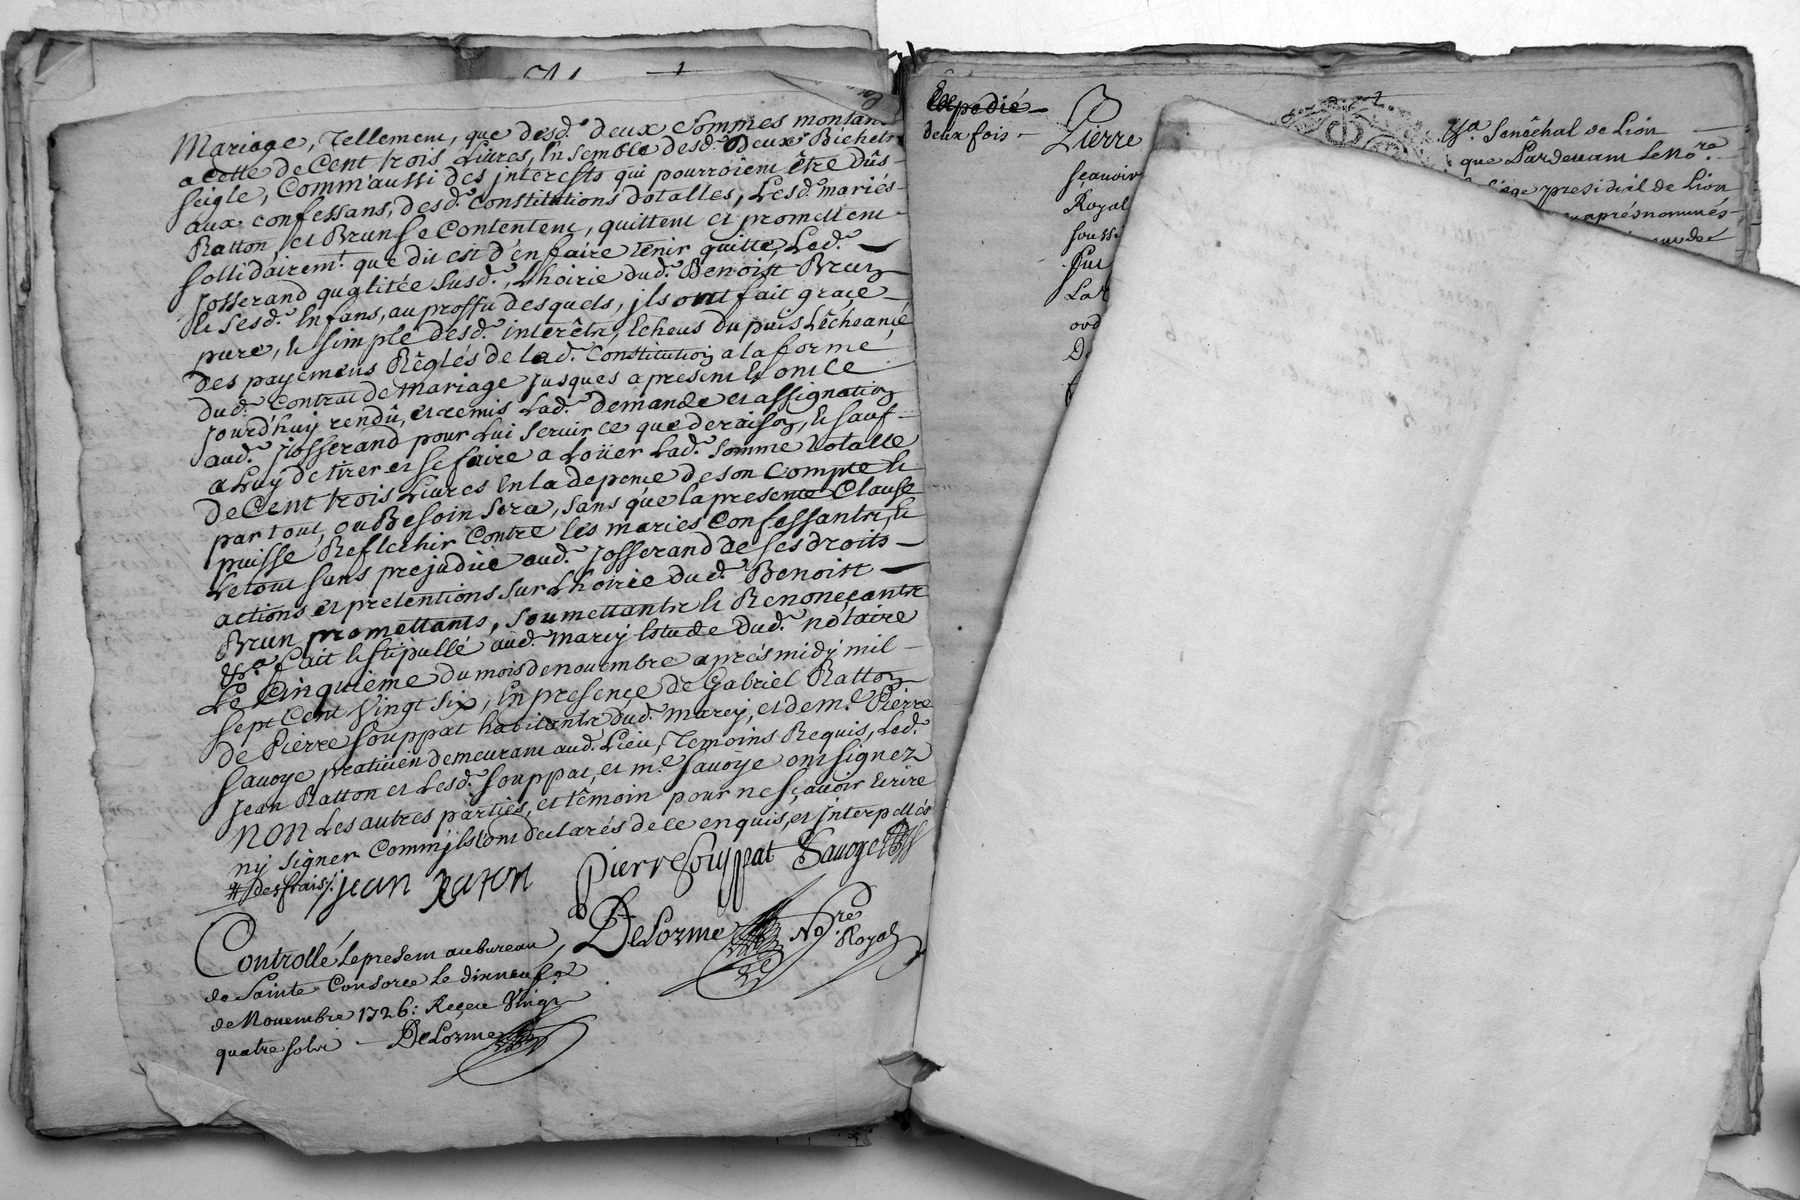 Mariage, Tellement, que desd. deux sommes montan
a Cette de Cent trois Livres, En semble desd. deux Bichets
seigle, Comm'aussi des jnterests qui pourroient être dûs
aux confessans, desd. Constitutions dotalles, Lesd. mariés
Ratton, et Brun se Contentent, quittent et promettent
sollidairemt. que dit est d'en faire tenir quitte, Led.
Josserand qualitée susd., L'hoirie dud. Benoist Brun
& sesd. Enfans, au proffit desquels, jls ont fait grace
pure, & simple desd. interêts, Echeus du puis L'êchéance
des payemens Rêglés de lad. Constitution a la forme
dud. Contrat de Mariage jusques a present & ont ce
jourd'huy rendû, et remis Lad. demande et assignation
aud. Josserand pour Lui servir ce que de raison, & sauf
a Luy de tirer et se faire a Loüer Lad. somme dotalle
de Cent trois Livres En la depence de son Compte &
par tout, ou Besoin sera, sans que la presente Clause
puisse Reflechir Contre les mariés Confessants, &
Le tout sans prejudice aud. Josserand de ses droits
actions et pretentions sur L'hoirie dud. Benoist
Brun promettants, soumettants & Renonçants
&a. fait & stipullé aud. Marcy Estude dud. notaire
Le Cinquième du mois de novembre aprés midy mil
sept Cent Vingt six, En presençe de Gabriel Ratton
de Pierre Souppat habitants dud. Marcy, et de me. Pierre
Savoye praticien demeurant aud. Lieu, Temoins Requis, Led.
Jean Ratton et Lesd. Souppat, et me. Savoye ont signez
NON Les autres parties, et têmoin pour ne sçavoir Ecrire
ny signer Comm'jls ont declarés de ce enquis, et jnterpellés
# des frais /. jean RaTon Pierre Souppat Savoye
DeLorme Nore. Royal
Controllé Le present au bureau
de Sainte Consorce le dixneufe
de Novembre 1726: Reçeu Vingt
quatre sols DeLorme
Expedié
deux fois
Pierre
sçavoir
Royal
soussi
Sur
Lar
ord
&a. Senéchal de Lion
que Pardevant Le Nore.
Siége presidial de Lion
aprésnommés